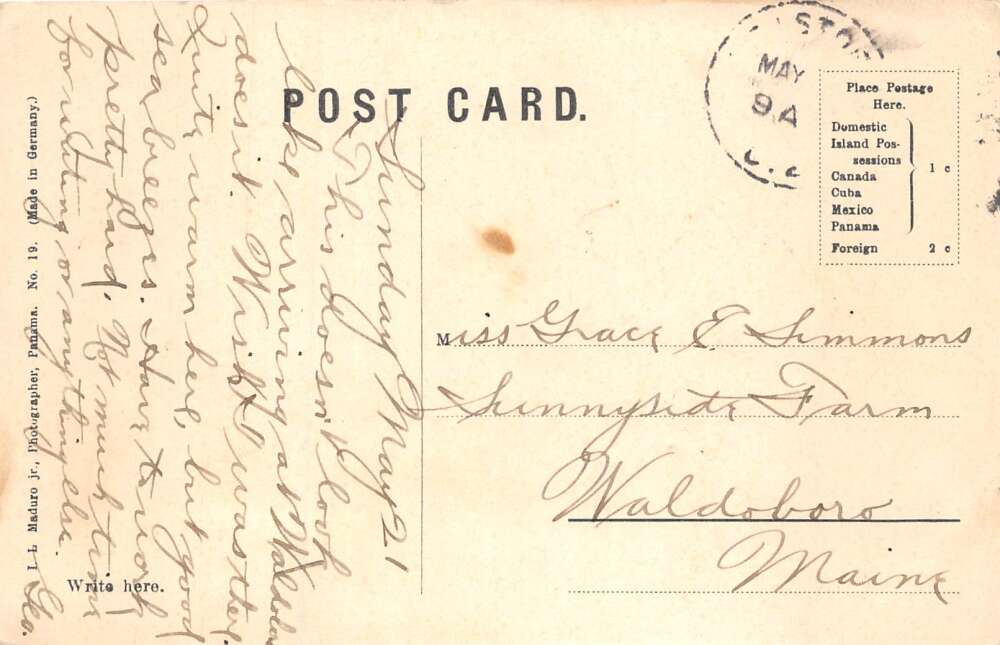 POST CARD.
MAY
9 A
Place Postage
Here.
Domestic
Island Pos-
sessions
Canada
Cuba
Mexico
Panama
1 c
Foreign 2 c
Miss Grace E Simmons
Sunnyside Farm
Waldoboro
Maine
Sunday May 21
This doesn't look
like arriving at Waldoboro
does it. Wish I was there.
Quite warm here, but good
sea breezes. Have to work
pretty hard. Not much time
for writing or anything else.
Geo.
Write here.
I. L. Maduro jr., Photographer, Panama. No. 19. (Made in Germany.)